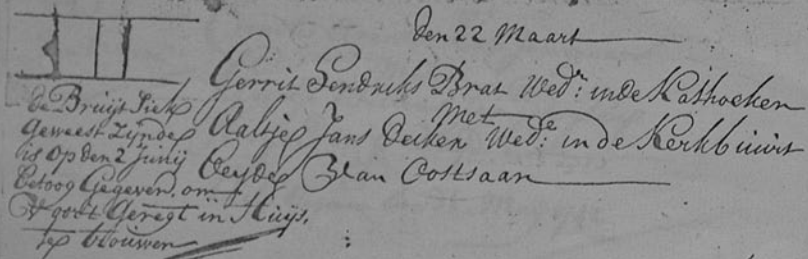 den 22 Maart
Gerrit Hendriks Brat Wedr: in de Kathoeken
Met
Aaltje Jans Wede: in de Kerkbuurt
Beyde Van Oostsaan
de Bruijt Siek
Geweest Zijnde
is op den 2 Junij
betoog Gegeven, om
geregt in Huijs,
te trouwen